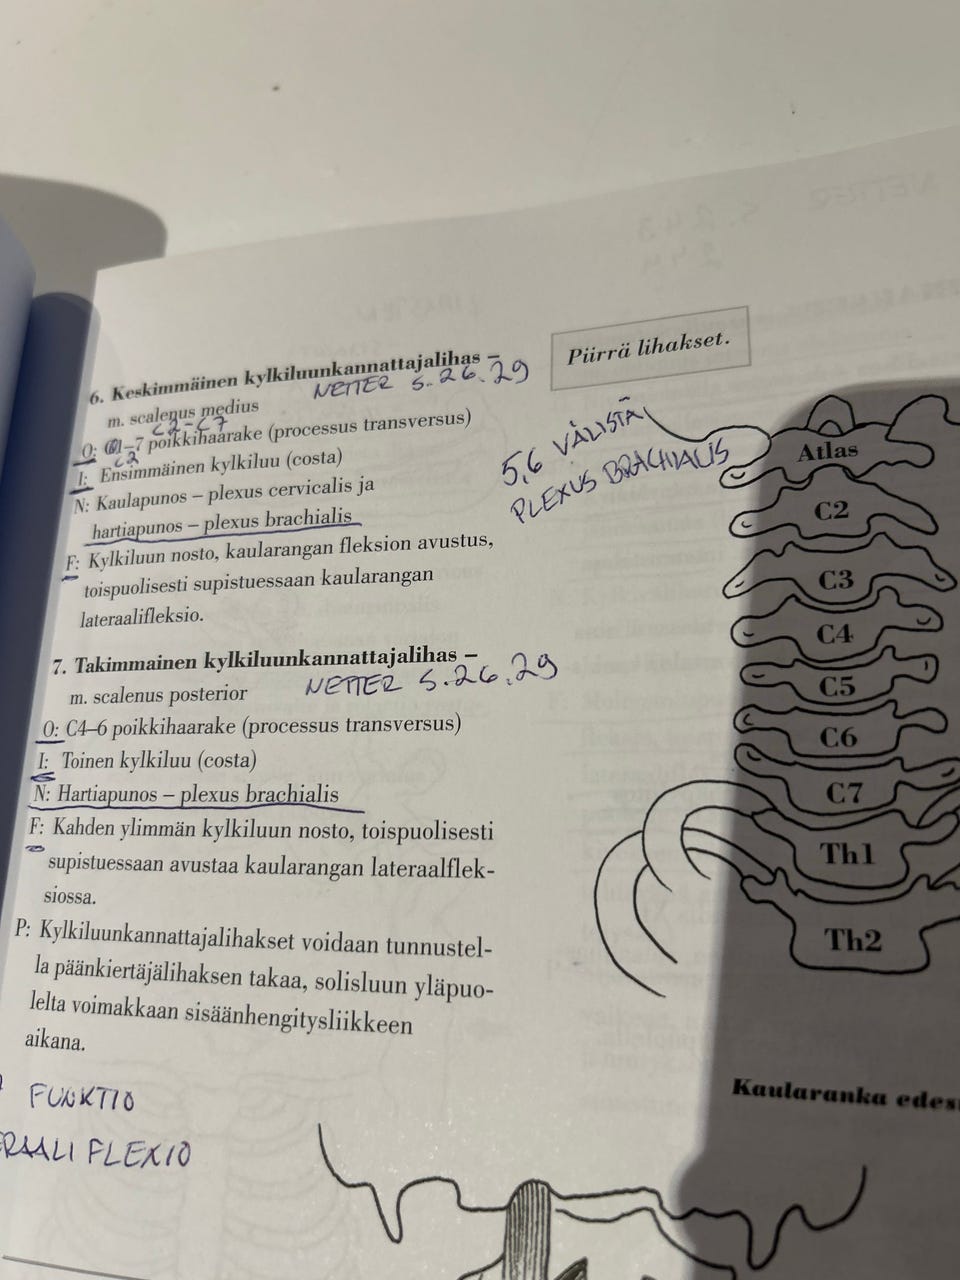 6. Keskimmäinen kylkiluunkannattajalihas –
NETTER S. 26, 29
m. scalenus medius
C2-C7
O: C1–7 poikkihaarake (processus transversus)
C2
I: Ensimmäinen kylkiluu (costa)
N: Kaulapunos – plexus cervicalis ja
hartiapunos – plexus brachialis
F: Kylkiluun nosto, kaularangan fleksion avustus,
toispuolisesti supistuessaan kaularangan
lateraalifleksio.
7. Takimmainen kylkiluunkannattajalihas –
NETTER S. 26, 29
m. scalenus posterior
O: C4–6 poikkihaarake (processus transversus)
I: Toinen kylkiluu (costa)
N: Hartiapunos – plexus brachialis
F: Kahden ylimmän kylkiluun nosto, toispuolisesti
supistuessaan avustaa kaularangan lateraalflek-
siossa.
P: Kylkiluunkannattajalihakset voidaan tunnustel-
la päänkiertäjälihaksen takaa, solisluun yläpuo-
lelta voimakkaan sisäänhengitysliikkeen
aikana.
FUNKTIO
ERAALI FLEXIO
Piirrä lihakset.
5,6 VÄLISTÄ
PLEXUS BRACHIALIS
Atlas
C2
C3
C4
C5
C6
C7
Th1
Th2
Kaularanka edes